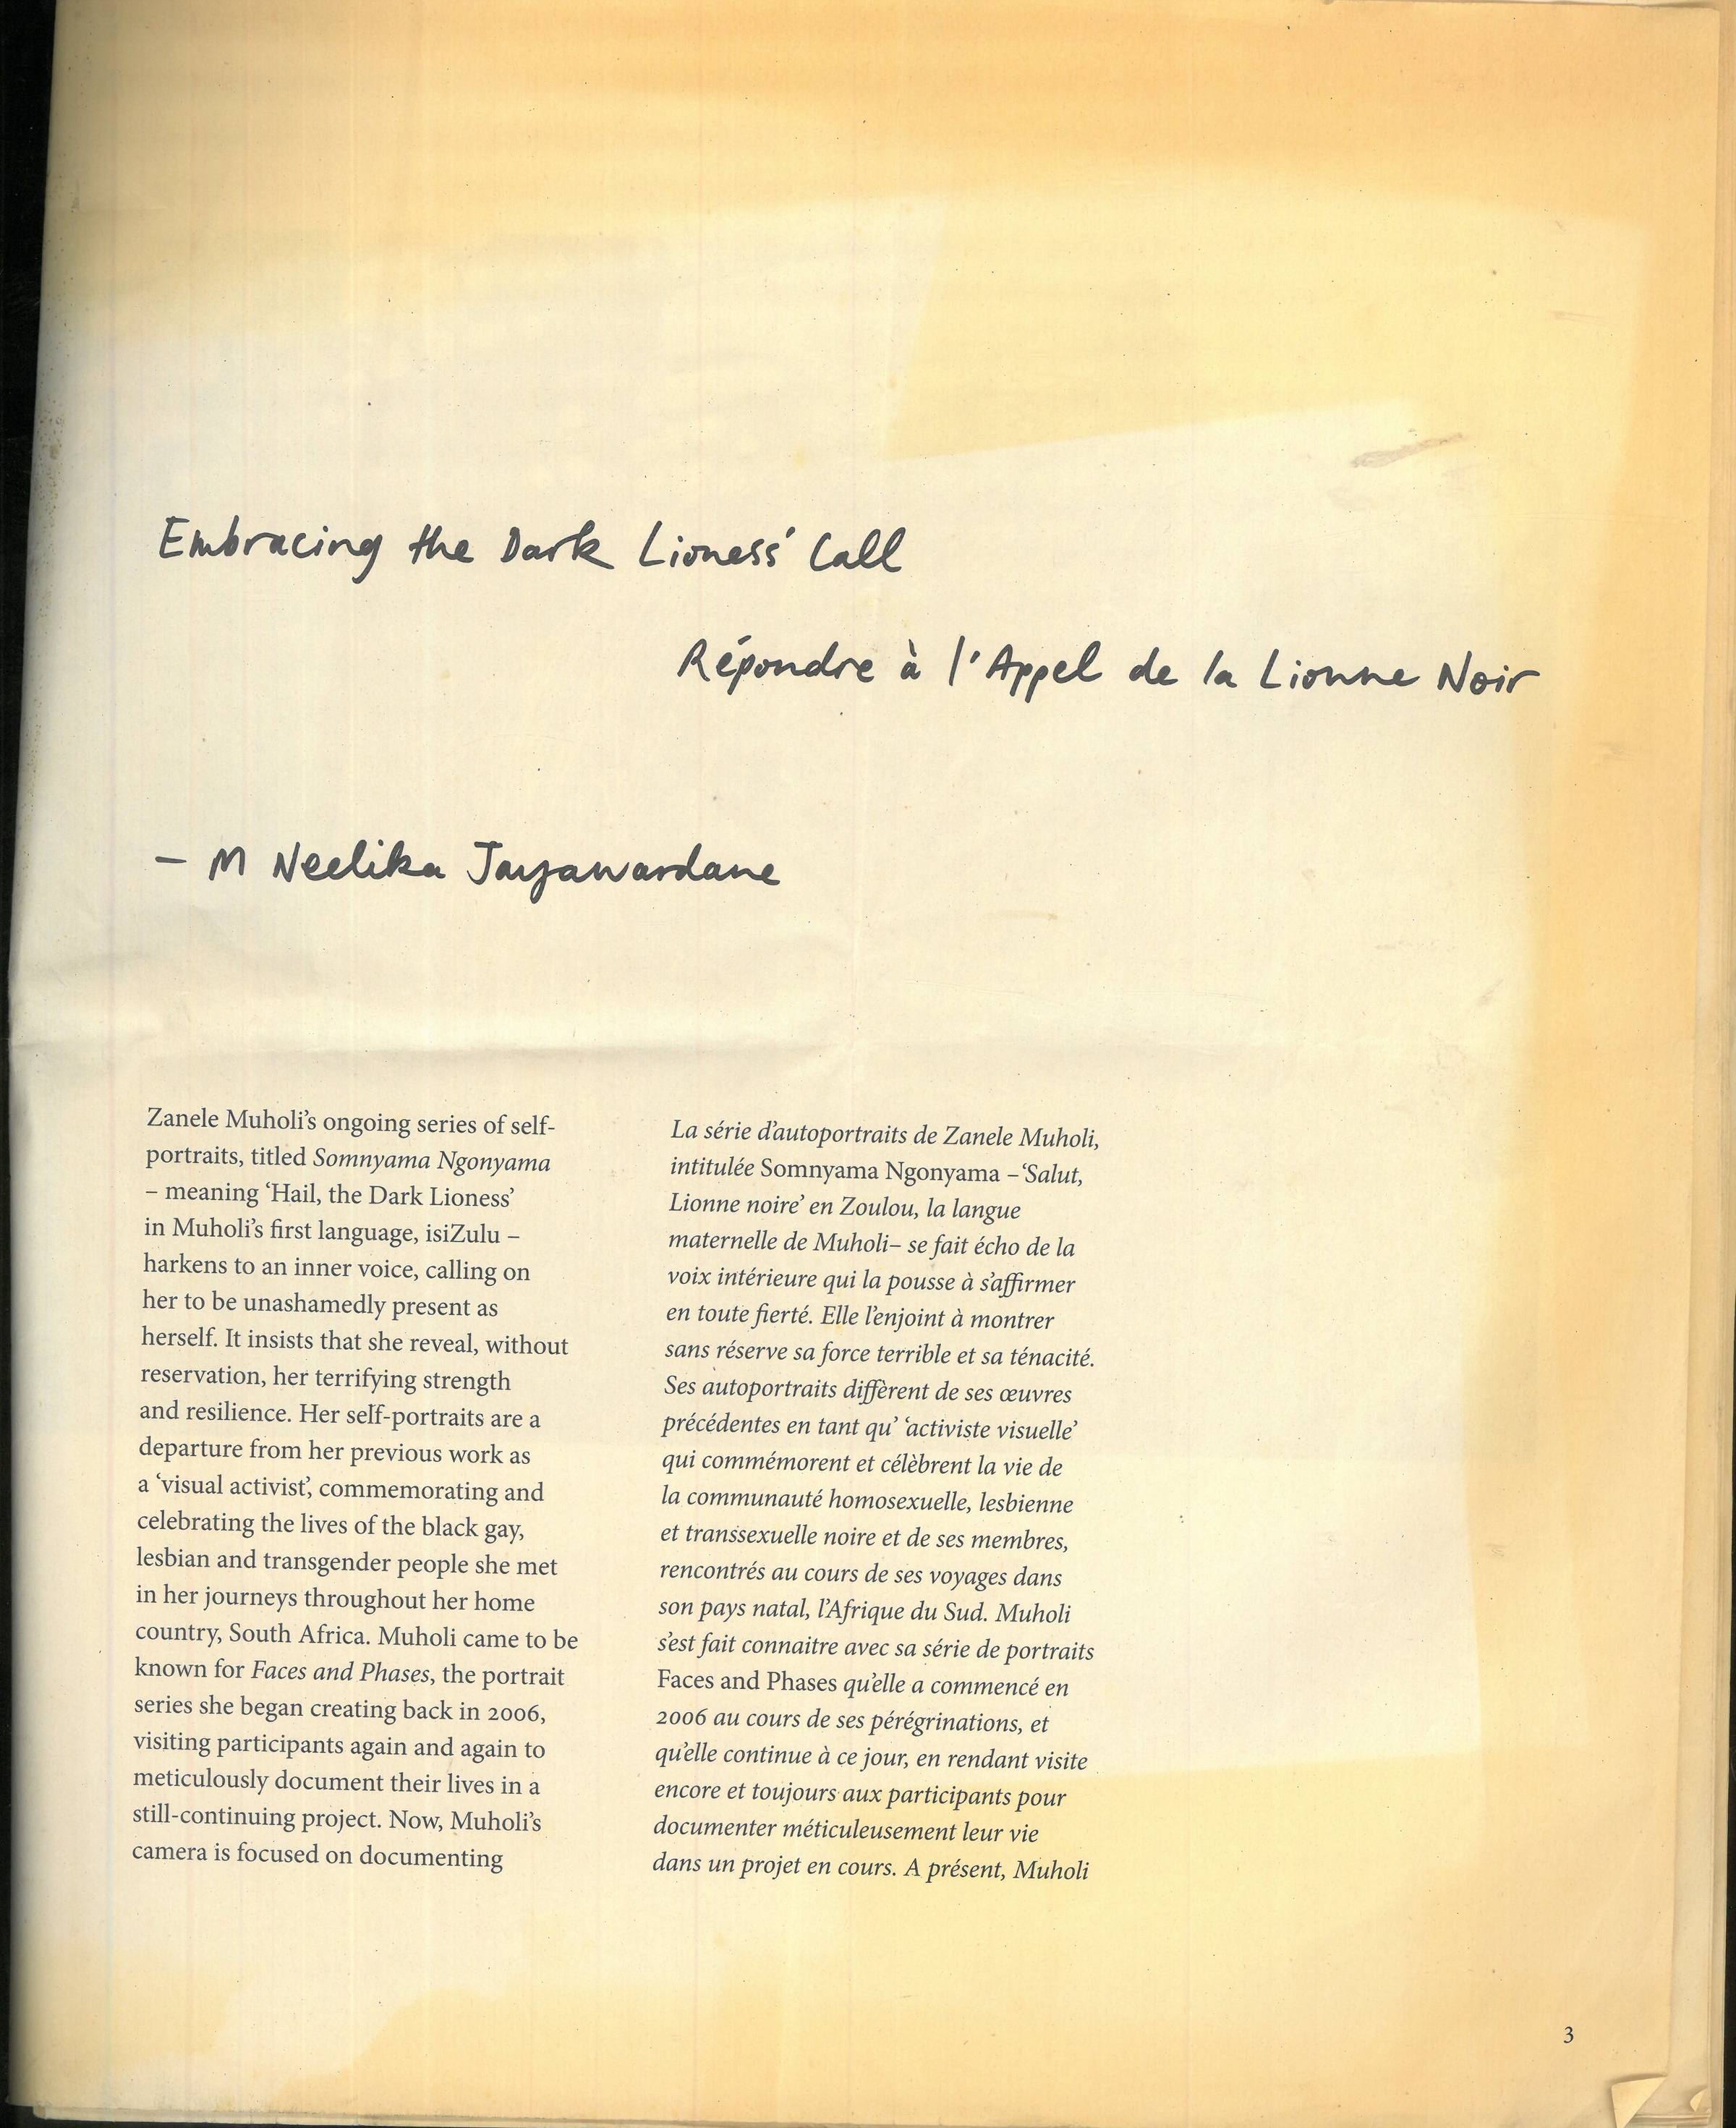 Embracing the Dark Lioness' Call
Répondre à l'Appel de la Lionne Noir
– M Neelika Jayawardane
Zanele Muholi's ongoing series of self-
portraits, titled Somnyama Ngonyama
– meaning ‘Hail, the Dark Lioness’
in Muholi's first language, isiZulu –
harkens to an inner voice, calling on
her to be unashamedly present as
herself. It insists that she reveal, without
reservation, her terrifying strength
and resilience. Her self-portraits are a
departure from her previous work as
a ‘visual activist’, commemorating and
celebrating the lives of the black gay,
lesbian and transgender people she met
in her journeys throughout her home
country, South Africa. Muholi came to be
known for Faces and Phases, the portrait
series she began creating back in 2006,
visiting participants again and again to
meticulously document their lives in a
still-continuing project. Now, Muholi's
camera is focused on documenting
La série d'autoportraits de Zanele Muholi,
intitulée Somnyama Ngonyama –‘Salut,
Lionne noire’ en Zoulou, la langue
maternelle de Muholi– se fait écho de la
voix intérieure qui la pousse à s'affirmer
en toute fierté. Elle l'enjoint à montrer
sans réserve sa force terrible et sa ténacité.
Ses autoportraits diffèrent de ses œuvres
précédentes en tant qu' ‘activiste visuelle’
qui commémorent et célèbrent la vie de
la communauté homosexuelle, lesbienne
et transsexuelle noire et de ses membres,
rencontrés au cours de ses voyages dans
son pays natal, l'Afrique du Sud. Muholi
s'est fait connaitre avec sa série de portraits
Faces and Phases qu'elle a commencé en
2006 au cours de ses pérégrinations, et
qu'elle continue à ce jour, en rendant visite
encore et toujours aux participants pour
documenter méticuleusement leur vie
dans un projet en cours. A présent, Muholi
3